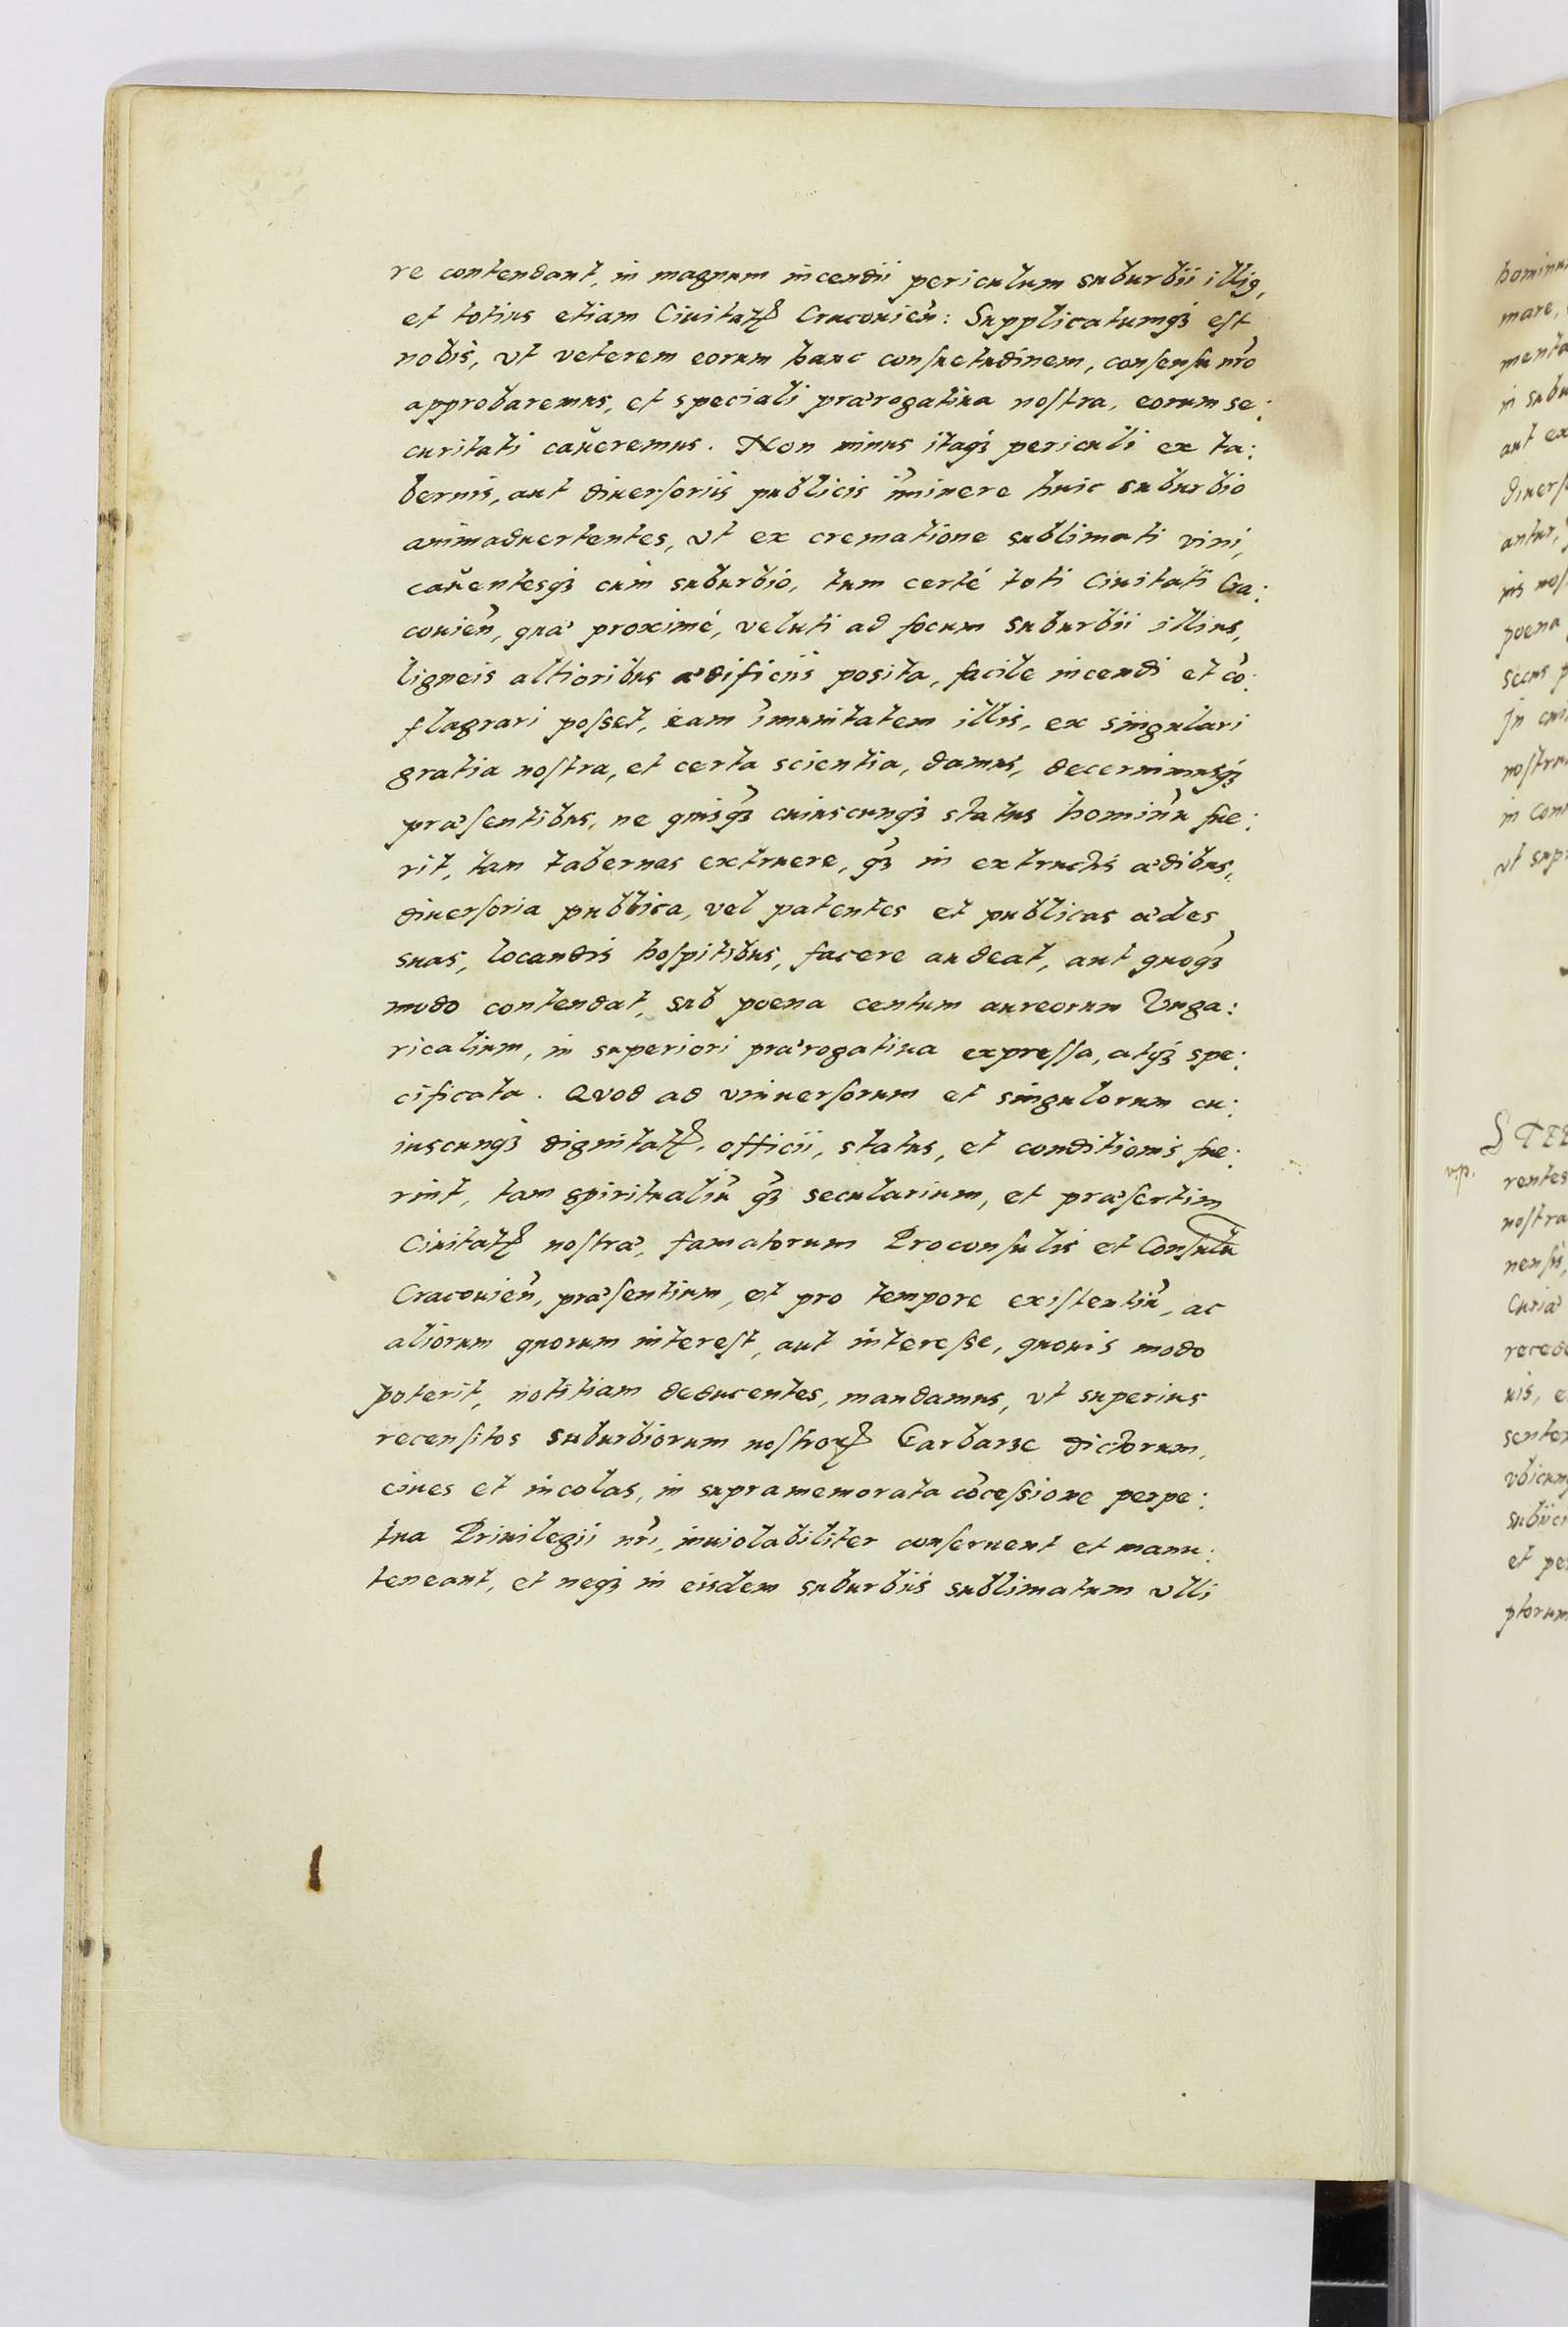 re contendant, in magnum incendii periculum suburbii illiꝰ,
et totius etiam Ciuitatꝭ Cracouien̄: Supplicatumqꝫ est
nobis, vt veterem eorum hanc consuetudinem, consensu nr̄o
approbaremus, et speciali prærogatiua nostra, eorum se:
curitati caueremus. Non minus itaqꝫ periculi ex ta:
bernis, aut diuersoriis publicis im̄inere huic suburbio
animaduertentes, vt ex crematione sublimati vini,
cauentesqꝫ cum suburbio, tum certé toti Ciuitati Cra:
couien̄, quæ proximé, veluti ad focum suburbii illius,
ligneis altioribus ædificiis posita, facile incendi et cō:
flagrari posset, eam im̄unitatem illis, ex singulari
gratia nostra, et certa scientia, damus, decernimusqꝫ
præsentibus, ne quisqꝫ̄ cuiuscunqꝫ status hominū fue:
rit, tam tabernas extruere, qꝫ̄ in extructis ædibus,
diuersoria publica, vel patentes et publicas ædes
suas, locandis hospitibus, facere audeat, aut quoqꝫ̄
modo contendat, sub poena centum aureorum Vnga:
ricalium, in superiori prærogatiua expressa, atqꝫ spe:
cificata. Quod ad vniuersorum et singulorum cu:
iuscunqꝫ dignitatꝭ, officii, status, et conditionis fue:
rint, tam spiritualiū qꝫ̄ secularium, et præsertim
Ciuitatꝭ nostræ, famatorum Proconsulis et Consulū
Cracouien̄, præsentium, et pro tempore existentiū, ac
aliorum quorum interest, aut interesse, quouis modo
poterit, notitiam deducentes, mandamus, vt superius
recensitos suburbiorum nostroꝝ Garbarze dictorum,
ciues et incolas, in supramemorata cōcessione perpe:
tua Priuilegii nr̄i, inuiolabiliter conseruent et manu:
teneant, et neqꝫ in eisdem suburbiis sublimatum vlli
mare,
in subu
aut ex
nis nos
poena
secus p
in com
vt sup
rentes
nostra
nensis,
Curiæ
et pe
ptorum